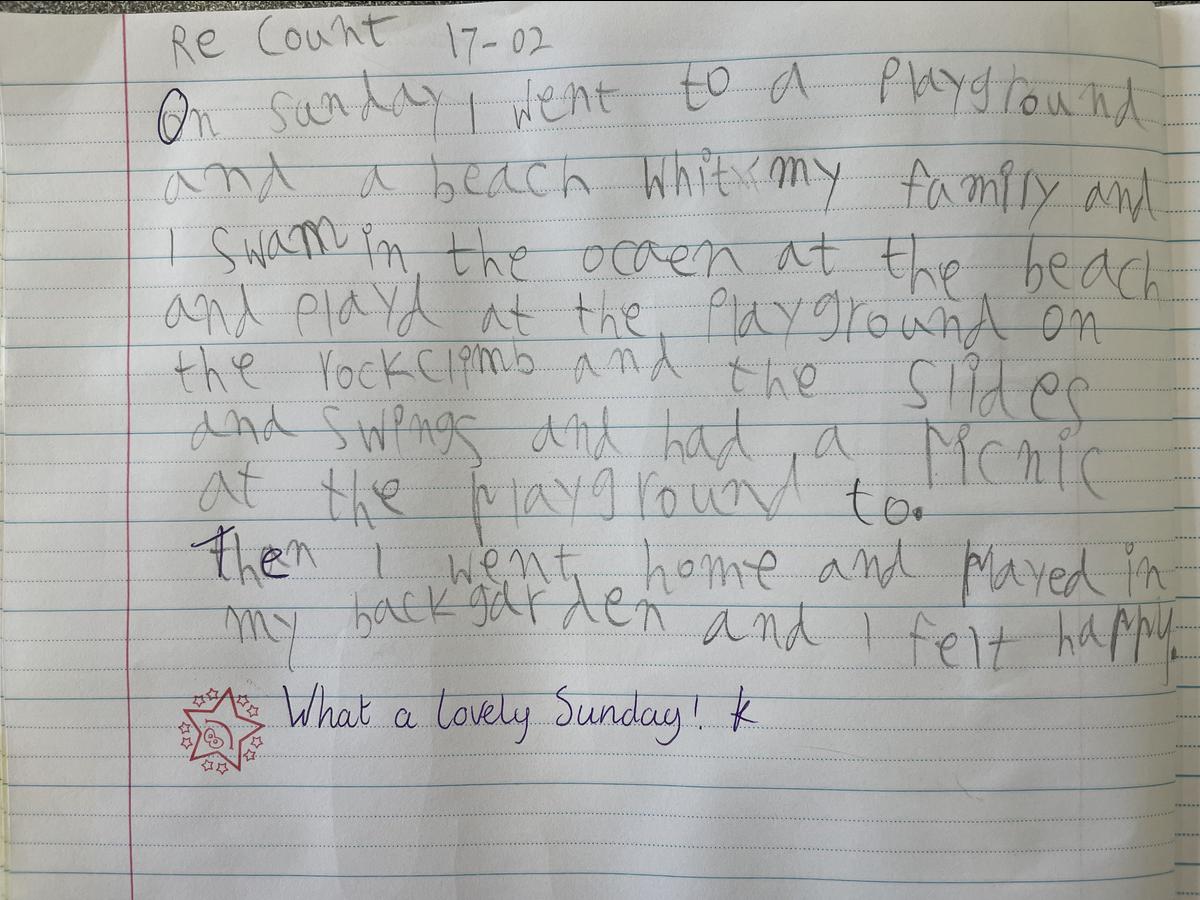 Re Count 17-02
On Sunday, I went to a Playground
and a beach Whit my family and
I swam in the ocaen at the beach
and playd at the Playground on
the rockclimb and the Slides
and swings and had a Picnic
at the playground to.
Then I went home and played in
my backgarden and I felt happy.
What a lovely Sunday! K